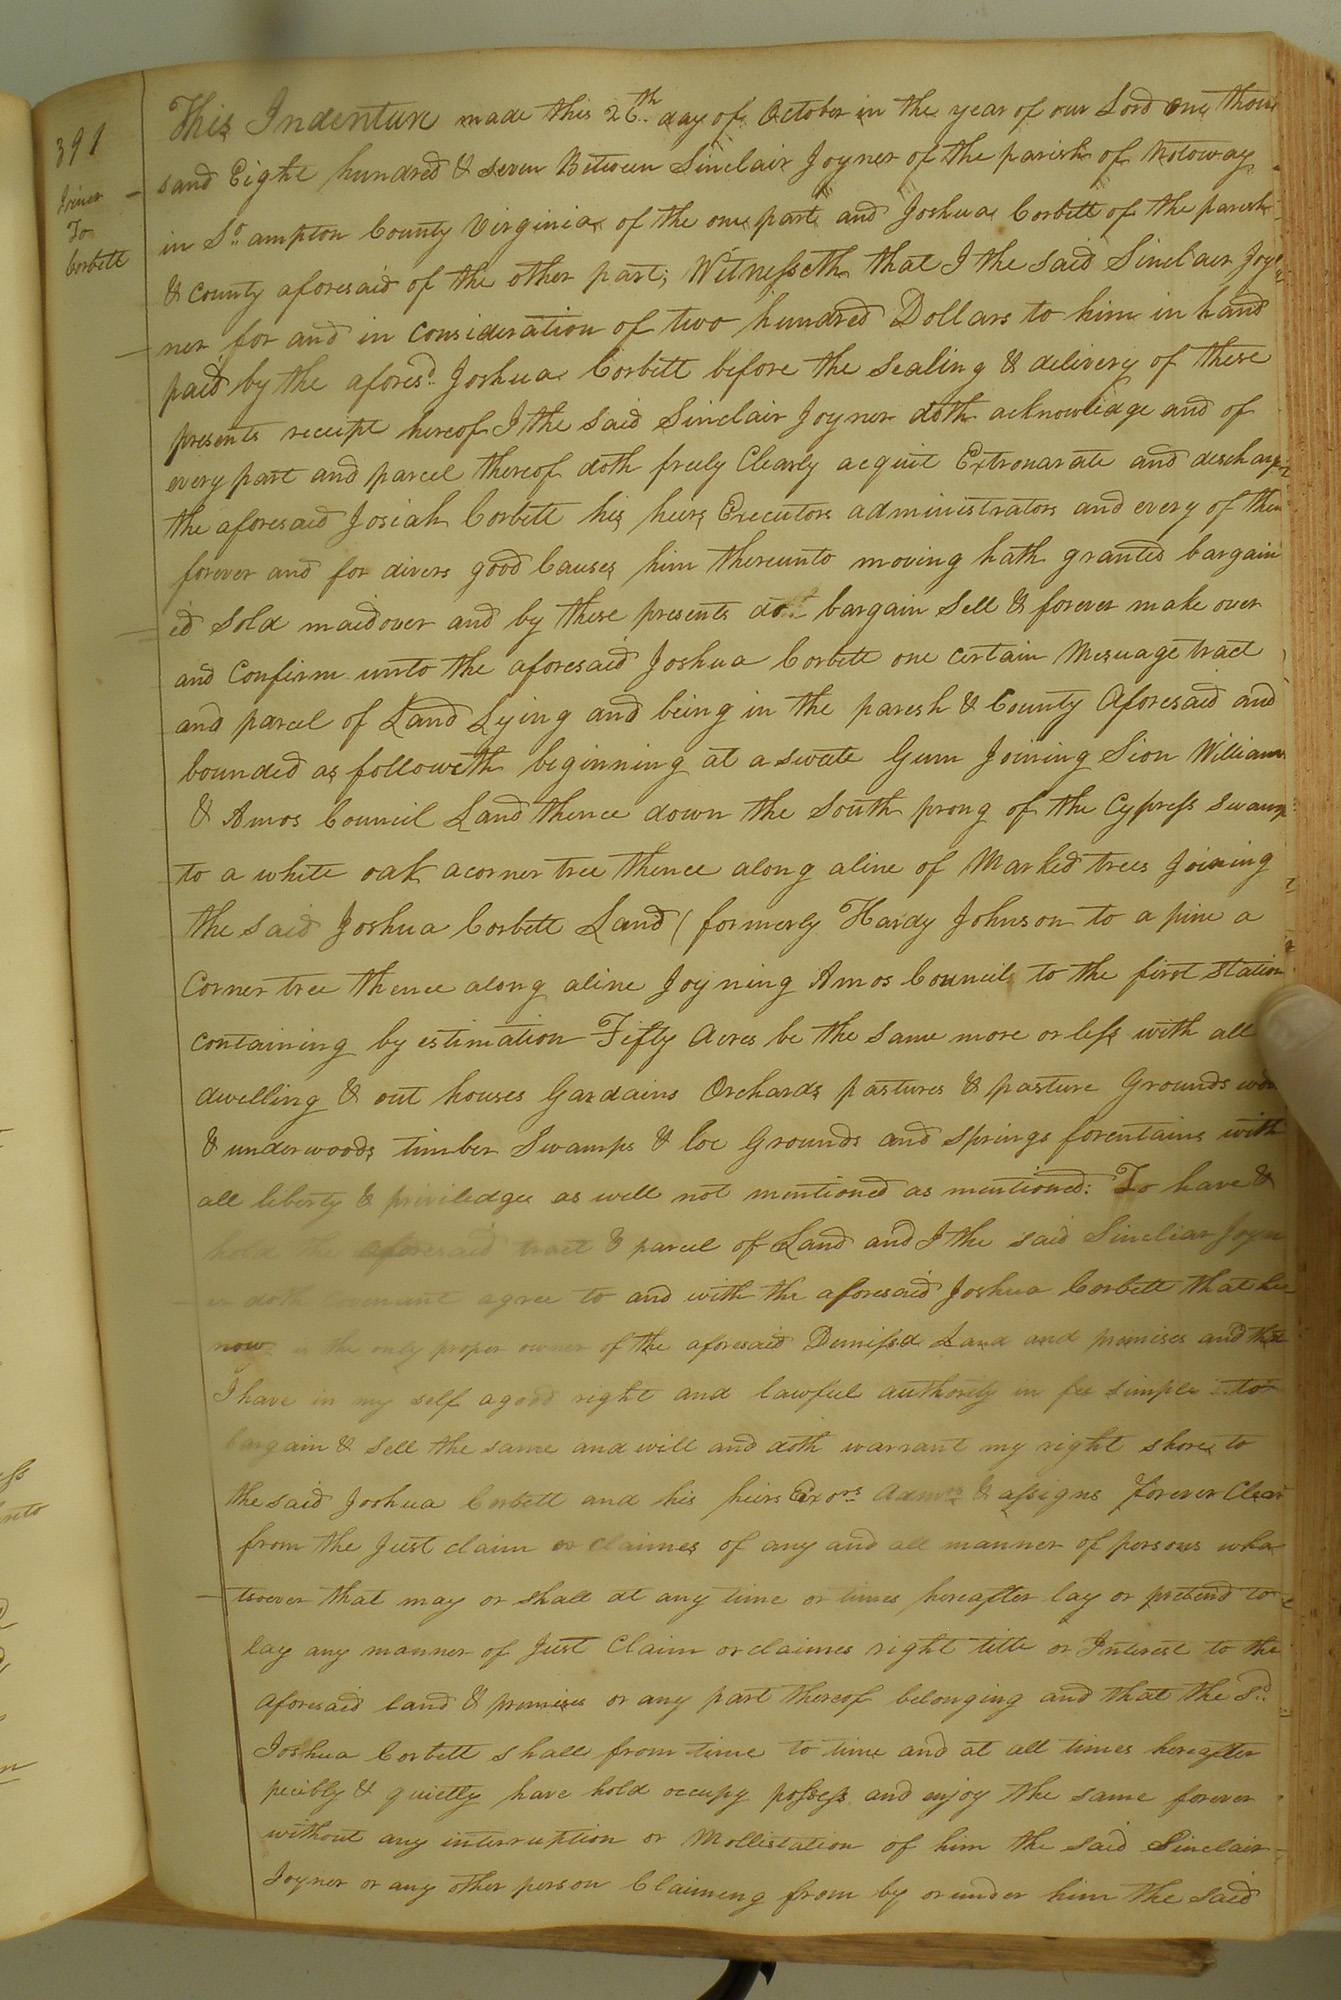 391
Joiner
To
Corbett
This Indenture made this 26th day of October in the year of our Lord one thou
sand Eight hundred & seven Between Sinclair Joyner of the parish of Notoway
in So.ampton County Virginia of the one part and Joshua Corbett of the parish
& County aforesaid of the other part; Witnesseth that I the said Sinclair Joy
ner for and in Consideration of two hundred Dollars to him in hand
paid by the aforesd. Joshua Corbett before the sealing & delivery of these
presents receipt hereof I the said Sinclair Joyner doth acknowledge and of
every part and parcel thereof doth freely Clearly acquit Extronarate and descharge
the aforesaid Josiah Corbett his heirs Executors administrators and every of them
forever and for divers good Causes him thereunto moving hath granted bargain
ed Sold maidover and by these presents do bargain Sell & forever make over
and Confirm unto the aforesaid Joshua Corbett one certain Mesuage tract
and parcel of Land Lying and being in the paresh & County Aforesaid and
bounded as followeth beginning at a sweete Gum Joining Sion Williams
& Amos Council Land thence down the South prong of the Cypress swamp
to a white oak acorner tree thence along aline of Marked trees Joining
the said Joshua Corbett Land (formerly Hardy Johnson to a pine a
Corner tree thence along aline Joyning Amos Council to the first Station
containing by estimation Fifty Acres be the same more or less with all
dwelling & out houses Gardains Orchards pastures & pasture Grounds
& underwoods timber Swamps & loe Grounds and springs forentains with
all liberty & priviledges as well not mentioned as mentioned: To have &
hold the aforesaid tract & parcel of Land and I the said Sincliar Joyn
er doth Covenant agree to and with the aforesaid Joshua Corbett that he
now is the only proper owner of the aforesaid Demissd Land and premises and that
I have in my self agood right and lawful authority in fee simple to
bargain & Sell the same and will and doth warrant my right shore to
the said Joshua Corbett and his heirs Exors Admrs & assigns forever Clear
from the Just claim or claimes of any and all manner of persons wha
tsoever that may or shall at any time or times hereafter lay or pretend to
lay any manner of Just Claim or claimes right title or Interest to the
aforesaid land & premises or any part thereof belonging and that the Sd.
Joshua Corbett shall from time to time and at all times hereafter
pecibly & quietly have hold occupy possess and enjoy the same forever
without any interruption or Mollistation of him the said Sinclair
Joyner or any other person Claimeng from by or under him the said